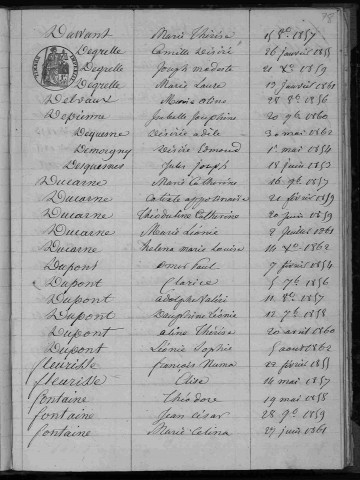 78
Dussart Marie Thérèse 15 8bre 1857
Degrelle Camille Désiré 26 janvier 1855
Degrelle Joseph modeste 21 Xbre 1859
Degrelle Marie Laure 13 janvier 1861
Delvaux Marie 28 8bre 1856
Depienne Isabelle Joséphine 20 9bre 1860
Dequesne Désirée adèle 30 mai 1862
Demorgny Désiré Edmond 1er mai 1854
Desquesnes Jules Joseph 18 juin 1853
Ducarne Marie Catherine 16 9bre 1857
Ducarne Calixte appolinaire 21 février 1859
Ducarne Théoduline Catherine 20 juin 1859
Ducarne Marie Léonie 2 juillet 1861
Ducarne helena marie Louise 14 Xbre 1862
Dupont omer Paul 7 février 1854
Dupont Clarice 5 7bre 1856
Dupont adolphe Valéri 11 8bre 1857
Dupont Dauphine Léonie 12 7bre 1858
Dupont aline Thérèse 20 avril 1860
Dupont Léonie Sophie 5 aout 1862
fleurisse françois Numa 22 février 1855
fleurisse Elise 14 mai 1857
fontaine Théodore 19 mai 1858
fontaine Jean César 28 9bre 1859
fontaine Marie Celina 27 juin 1861